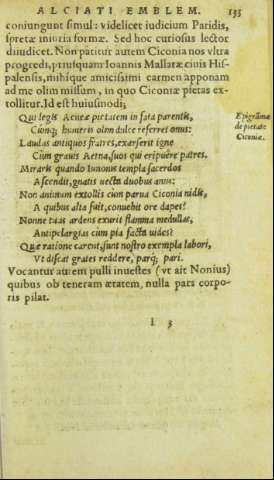 ALCIATI EMBLEM. 135
coniungunt simul: videlicet iudicium Paridis,
spretæ iniuria formæ. Sed hoc curiosus lector
diiudicet. Non patitur autem Ciconia nos vltra
progredi, priusquam Ioannis Mallaræ ciuis His-
palensis, mihique amicissimi carmen apponam
ad me olim missum, in quo Ciconiæ pietas ex-
tollitur. Id est huiusmodi;
Qui legis Aeneæ pietatem in fata parentis,
Epigrāma
de pietate
Ciconiæ.
Cumq; humeris olim dulce referret onus:
Laudas antiquos fratres, exarserit igne
Cùm grauis Aetna, suos qui eripuêre patres.
Miraris quando Iunonis templa sacerdos
Ascendit, gnatis uecta duobus anus:
Non animum extollis cùm parua Ciconia nidis,
A quibus alta fuit, conuehit ore dapes?
Nonne tuas ardens exurit flamma medullas,
Antipelargias cùm pia facta uides?
Quæ ratione carent, sunt nostro exempla labori,
Vt discat grates reddere, parq; pari.
Vocantur autem pulli inuestes (vt ait Nonius)
quibus ob teneram ætatem, nulla pars corpo-
ris pilat.
I 3